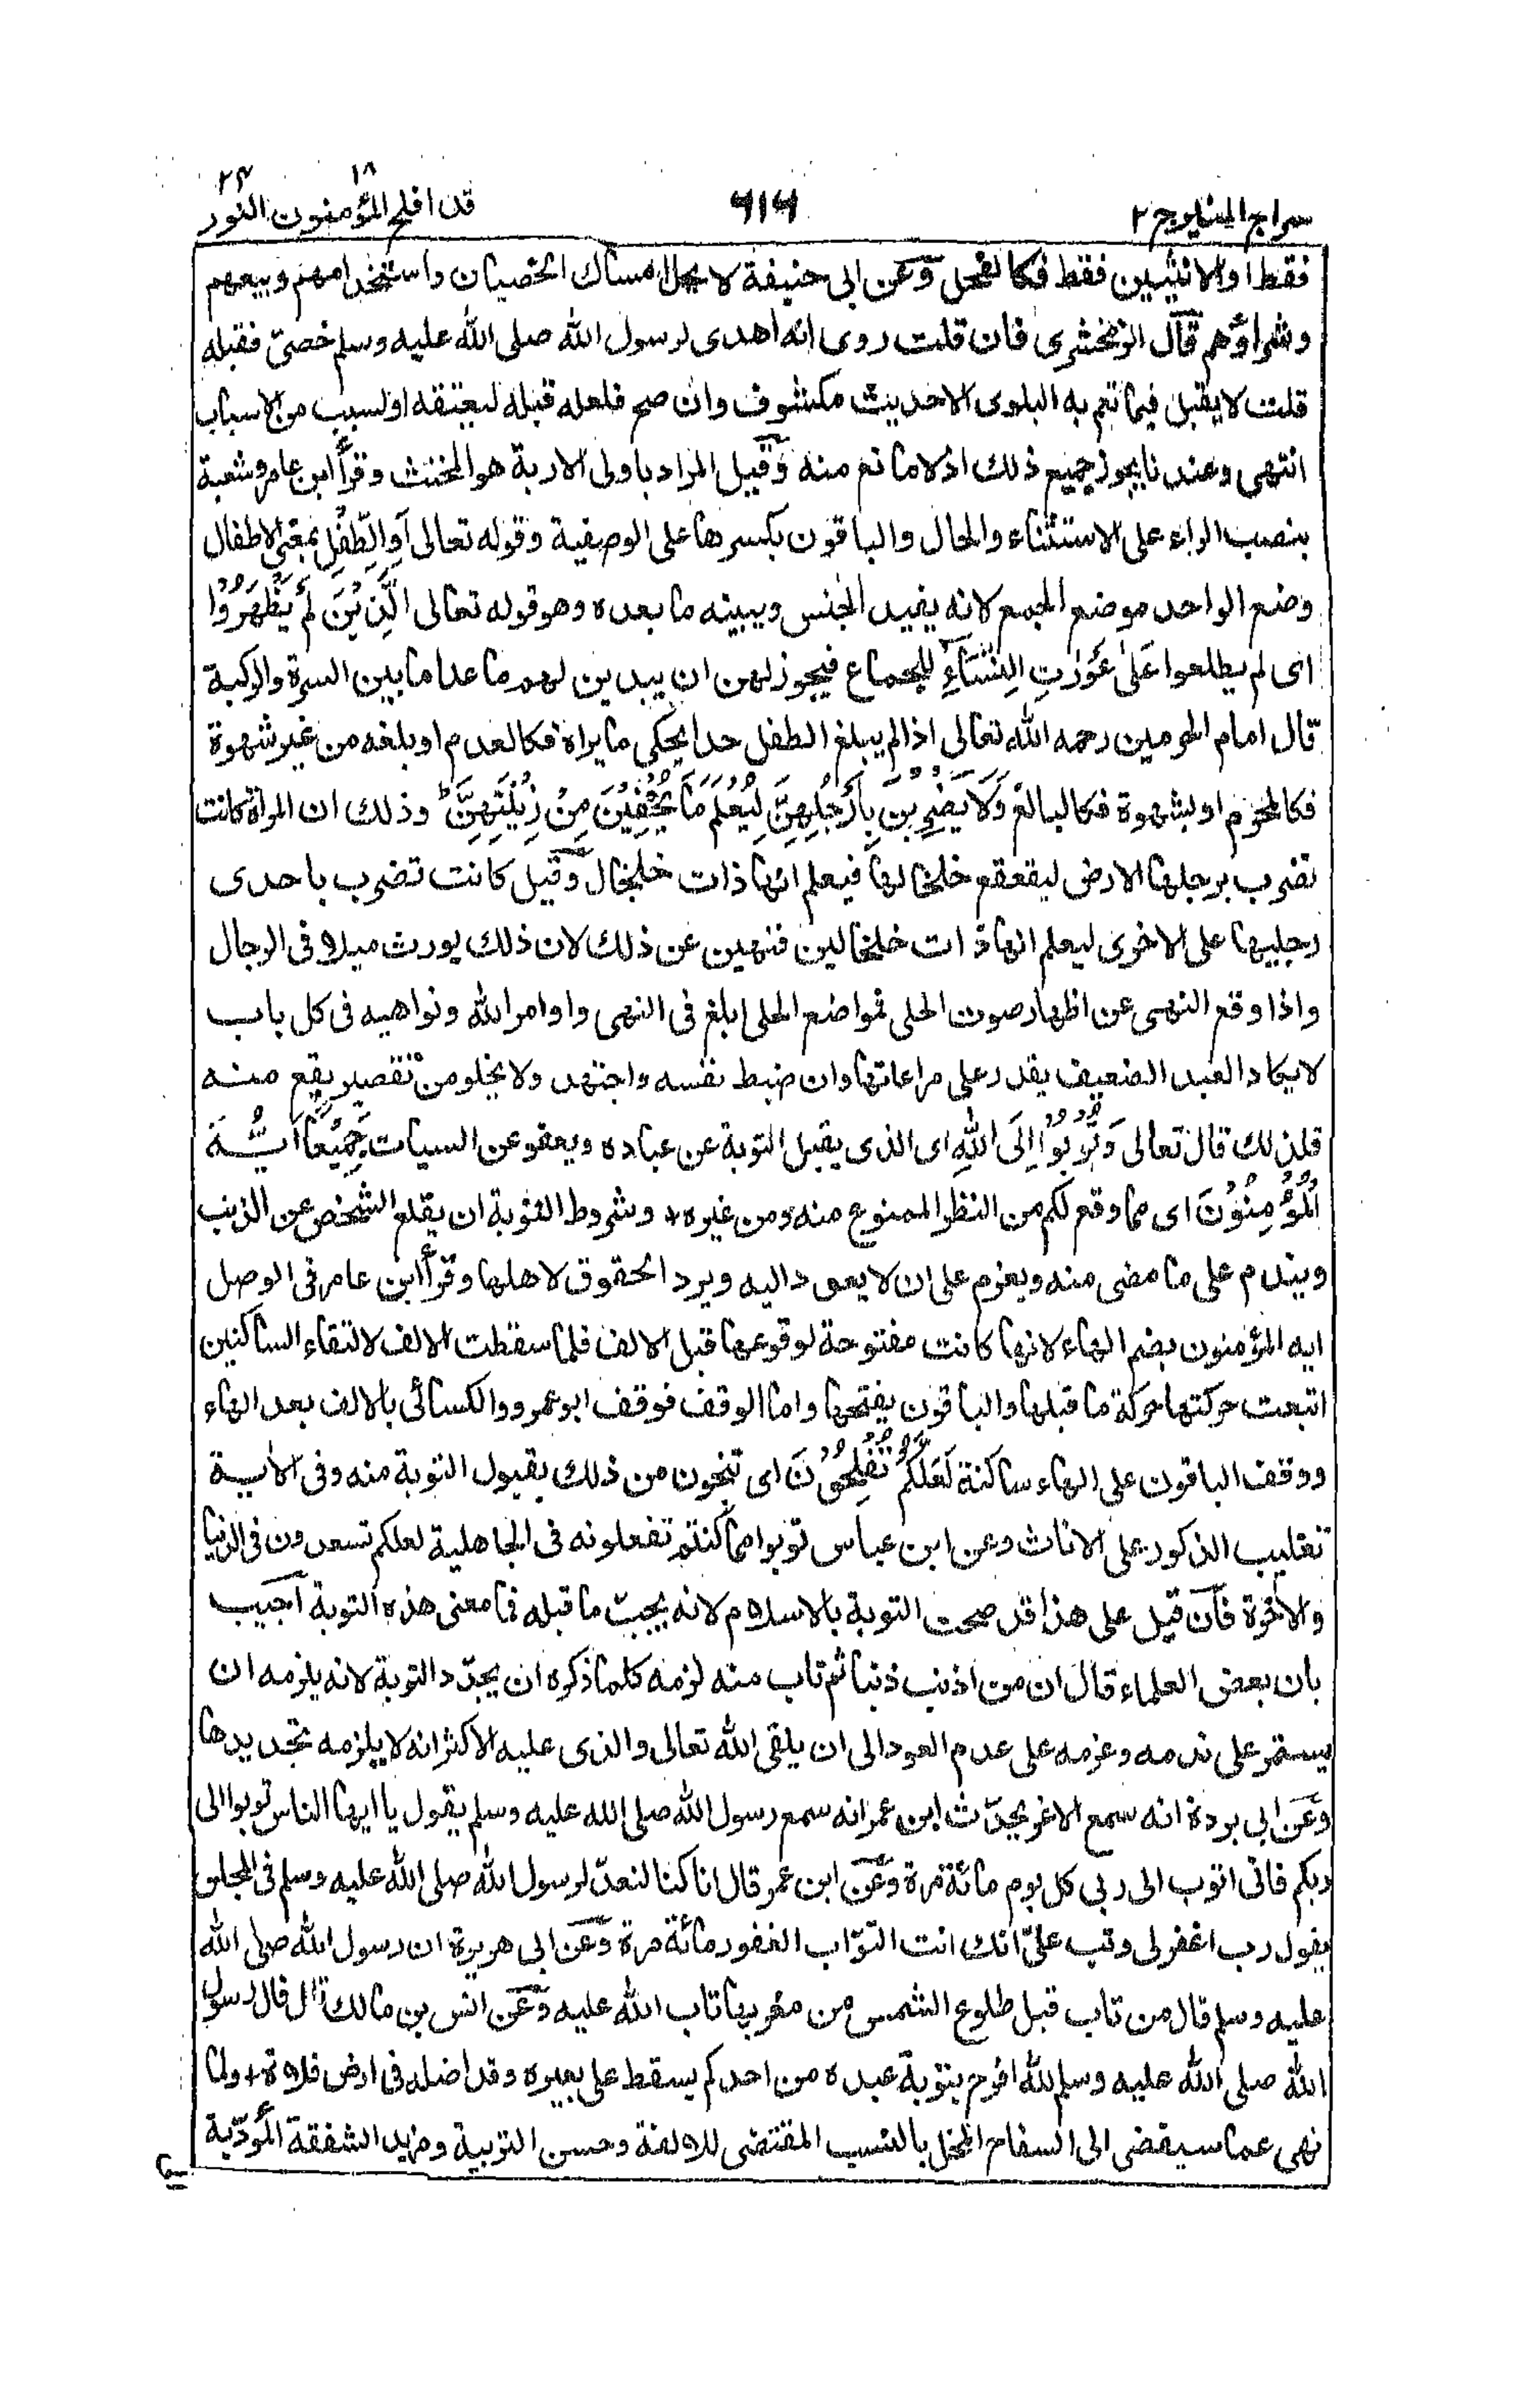 سراج المنير ج ٢
٦١٦
قد افلح ١٨ المؤمنون النور ٢٤
فقط او الانثيين فقط فكالفحل وعن ابى حنيفة لا يحل امساك الخصيان واستخدامهم وبيعهم
وشراؤهم قال الزمخشرى فان قلت روى انه اهدى لرسول الله صلى الله عليه وسلم خصىّ فقبله
قلت لا يقبل فيما تعم به البلوى الا حديث مكشوف وان صح فلعله قبله ليعتقه او لسبب من الاسباب
انتهى وعندنا يجوز جميع ذلك اذ لا مانع منه وقيل المراد باولى الاربة هو المخنث وقرأ ابن عامر وشعبة
بنصب الراء على الاستثناء والحال والباقون بكسرها على الوصفية وقوله تعالى اَوِ الطِّفْلِ بمعنى الاطفال
وضع الواحد موضع الجمع لانه يفيد الجنس ويبينه ما بعده وهو قوله تعالى الَّذِيْنَ لَمْ يَظْهَرُوْا
اى لم يطلعوا عَلٰى عَوْرٰتِ النِّسَآءِ للجماع فيجوز لهن ان يبدين لهم ما عدا ما بين السرة والركبة
قال امام الحرمين رحمه الله تعالى اذا لم يبلغ الطفل حدا يحكى ما يراه فكالعدم او بلغه من غير شهوة
فكالمحرم او بشهوة فكالبالغ وَلَا يَضْرِبْنَ بِاَرْجُلِهِنَّ لِيُعْلَمَ مَا يُخْفِيْنَ مِنْ زِيْنَتِهِنَّ ط وذلك ان المرأة كانت
تضرب برجلها الارض ليقعقع خلخالها فيعلم انها ذات خلخال وقيل كانت تضرب باحدى
رجليها على الاخرى ليعلم انها ذات خلخالين فنهين عن ذلك لان ذلك يورث ميلا فى الرجال
واذا وقع النهى عن اظهار صوت الحلى فمواضع الحلى ابلغ فى النهى واوامر الله ونواهيه فى كل باب
لا يكاد العبد الضعيف يقدر على مراعاتها وان ضبط نفسه واجتهد ولا يخلو من تقصير يقع منه
فلذلك قال تعالى وَتُوْبُوْا اِلَى اللهِ اى الذى يقبل التوبة عن عباده ويعفو عن السيات جَمِيْعًا اَيُّهَ
الْمُؤْمِنُوْنَ اى مما وقع لكم من النظر الممنوع منه ومن غيره + وشروط التوبة ان يقلع الشخص عن الذنب
ويندم على ما مضى منه ويعزم على ان لا يعود اليه ويرد الحقوق لاهلها وقرأ ابن عامر فى الوصل
ايه المؤمنون بضم الهاء لانها كانت مفتوحة لوقوعها قبل الالف فلما سقطت الالف لالتقاء الساكنين
اتبعت حركتها حركة ما قبلها والباقون يفتحها واما الوقف فوقف ابو عمرو والكسائى بالالف بعد الهاء
ووقف الباقون على الهاء ساكنة لَعَلَّكُمْ تُفْلِحُوْنَ اى تنجون من ذلك بقبول التوبة منه وفى الاية
تغليب الذكور على الاناث وعن ابن عباس توبوا مما كنتم تفعلونه فى الجاهلية لعلكم تسعدون فى الدنيا
والاخرة فان قيل على هذا قد صحت التوبة بالاسلام لانه يجبّ ما قبله فما معنى هذه التوبة اجيب
بان بعض العلماء قال ان من اذنب ذنبا ثم تاب منه لزمه كلما ذكره ان يجدّد التوبة لانه يلزمه ان
يستمر على ندمه وعزمه على عدم العود الى ان يلقى الله تعالى والذى عليه الاكثر انه لا يلزمه تجديدها
وعن ابى بردة انه سمع الاغر يحدّث ابن عمر انه سمع رسول الله صلى الله عليه وسلم يقول يا ايها الناس توبوا الى
ربكم فانى اتوب الى ربى كل يوم مائة مرة وعن ابن عمر قال انا كنا لنعدّ لرسول الله صلى الله عليه وسلم فى المجلس
يقول رب اغفرلى وتب علىّ انك انت التوّاب الغفور مائة مرة وعن ابى هريرة ان رسول الله صلى الله
عليه وسلم قال من تاب قبل طلوع الشمس من مغربها تاب الله عليه وعن انس بن مالك قال قال رسول
الله صلى الله عليه وسلم لله افرح بتوبة عبده من احدكم يسقط على بعيره وقد اضله فى ارض فلاة + ولما
نهى عما سيفضى الى السفاح المخل بالنسب المقتضى للالفة وحسن التربية ومزيد الشفقة المؤدّية